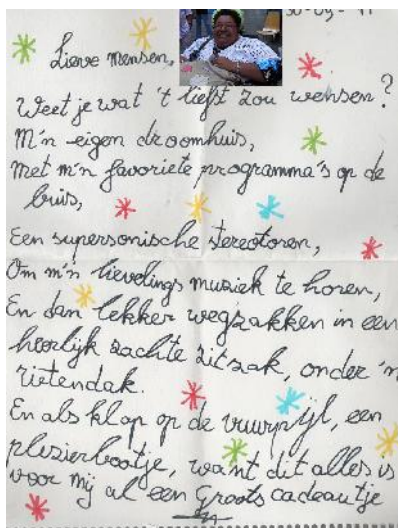 30-09-11
Lieve mensen,
Weet je wat 't liefst zou wensen?
M'n eigen droomhuis,
Met m'n favoriete programma's op de
buis,
Een supersonische stereotoren,
Om m'n lievelings muziek te horen,
En dan lekker wegzakken in een
heerlijk zachte zitzak, onder 'n
rietendak.
En als klap op de vuurpijl, een
plezierbootje, want dit alles is
voor mij al een Groots cadeautje